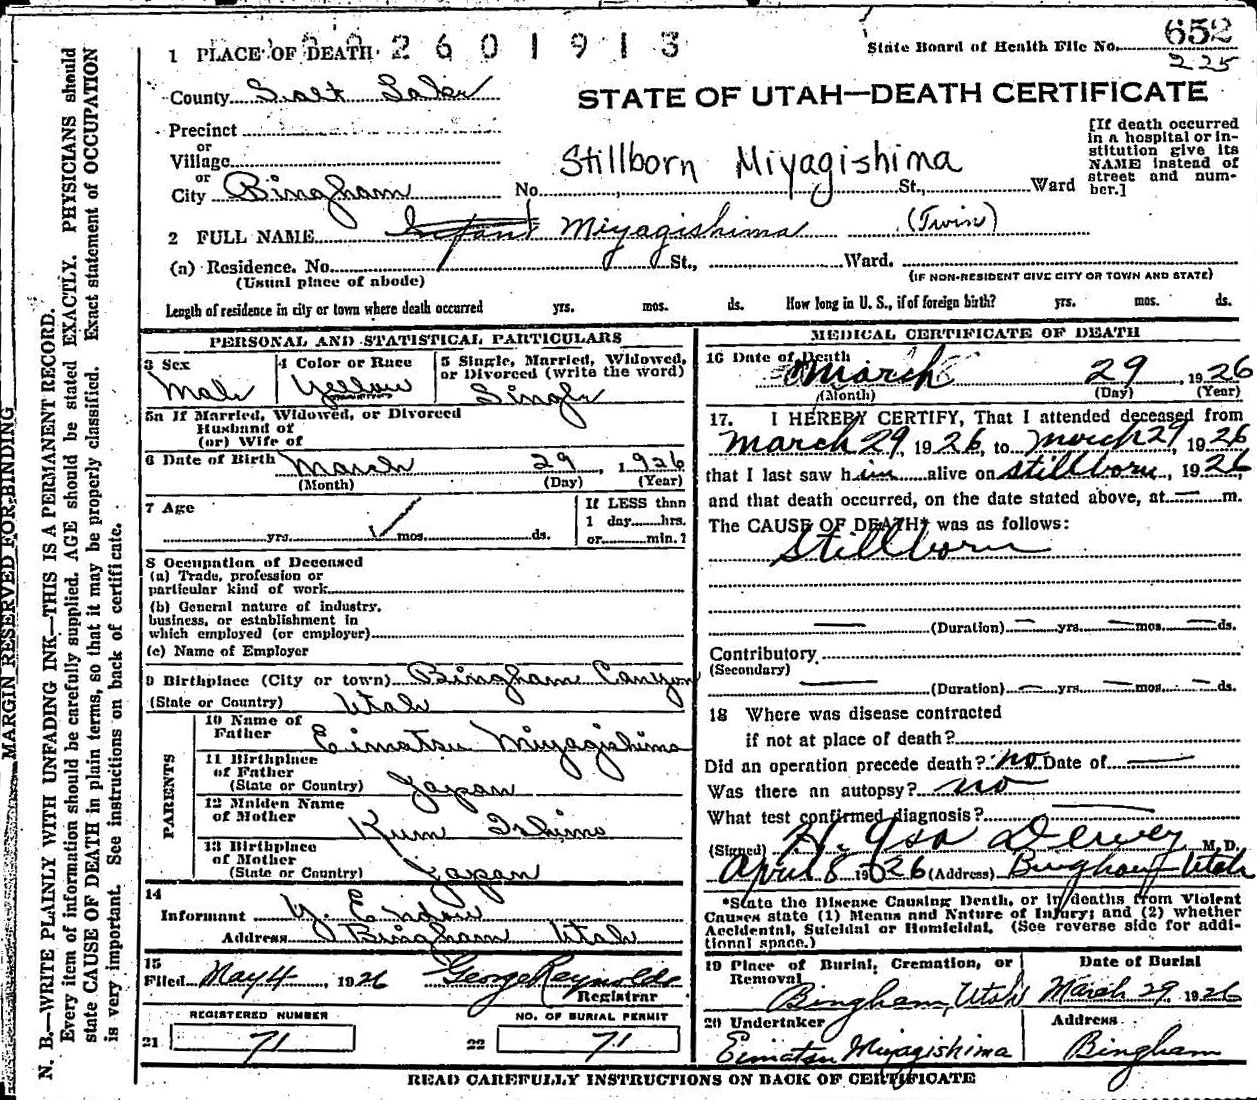 652
State Board of Health File No.
225
2 6 0 1 9 1 3
1 PLACE OF DEATH
County Salt Lake
STATE OF UTAH—DEATH CERTIFICATE
Precinct
or
Village
or
City Bingham No. St., Ward
Stillborn Miyagishima
[If death occurred
in a hospital or in-
stitution give its
NAME instead of
street and num-
ber.]
2 FULL NAME Infant Miyagishima (Twin)
(a) Residence. No. St., Ward.
(Usual place of abode)
(IF NON-RESIDENT GIVE CITY OR TOWN AND STATE)
Length of residence in city or town where death occurred yrs. mos. ds. How long in U. S., if of foreign birth? yrs. mos. ds.
PERSONAL AND STATISTICAL PARTICULARS
3 Sex
Male
4 Color or Race
Yellow
5 Single, Married, Widowed,
or Divorced (write the word)
Single
5a If Married, Widowed, or Divorced
Husband of
(or) Wife of
6 Date of Birth March 29, 1926
(Month) (Day) (Year)
7 Age
yrs. mos. ds.
If LESS than
1 day hrs.
or min.?
8 Occupation of Deceased
(a) Trade, profession or
particular kind of work
(b) General nature of industry,
business, or establishment in
which employed (or employer)
(c) Name of Employer
9 Birthplace (City or town) Bingham Canyon
(State or Country) Utah
PARENTS
10 Name of
Father Eimatsu Miyagishima
11 Birthplace
of Father
(State or Country) Japan
12 Maiden Name
of Mother Kum Ishima
13 Birthplace
of Mother
(State or Country) Japan
14
Informant Y. Endow
Address Bingham Utah
15
Filed May 4, 1926 George Reynolds
Registrar
REGISTERED NUMBER
21 71
NO. OF BURIAL PERMIT
22 71
MEDICAL CERTIFICATE OF DEATH
16 Date of Death
March 29, 1926
(Month) (Day) (Year)
17. I HEREBY CERTIFY, That I attended deceased from
March 29, 1926, to March 29, 1926
that I last saw him alive on stillborn, 1926,
and that death occurred, on the date stated above, at — m.
The CAUSE OF DEATH* was as follows:
Stillborn
— (Duration) — yrs. — mos. — ds.
Contributory
(Secondary)
— (Duration) — yrs. — mos. — ds.
18 Where was disease contracted
if not at place of death?
Did an operation precede death? no Date of —
Was there an autopsy? no
What test confirmed diagnosis? —
(Signed) H. Dewey M. D.
April 8 1926 (Address) Bingham Utah
*State the Disease Causing Death, or in deaths from Violent
Causes state (1) Means and Nature of Injury; and (2) whether
Accidental, Suicidal or Homicidal. (See reverse side for addi-
tional space.)
19 Place of Burial, Cremation, or
Removal
Bingham, Utah
Date of Burial
March 29 1926
20 Undertaker
Eimatsu Miyagishima
Address
Bingham
READ CAREFULLY INSTRUCTIONS ON BACK OF CERTIFICATE
MARGIN RESERVED FOR BINDING
N. B.—WRITE PLAINLY WITH UNFADING INK—THIS IS A PERMANENT RECORD.
Every item of information should be carefully supplied. AGE should be stated EXACTLY. PHYSICIANS should
state CAUSE OF DEATH in plain terms, so that it may be properly classified. Exact statement of OCCUPATION
is very important. See instructions on back of certificate.